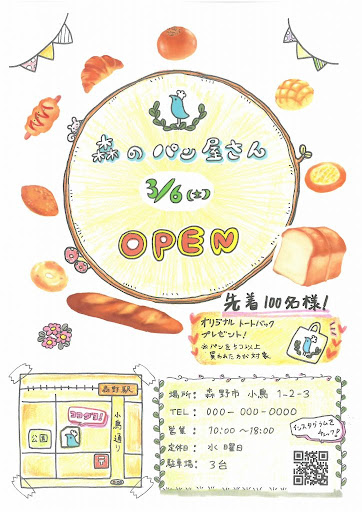 森のパン屋さん
3/6(土)
OPEN
先着100名様!
オリジナル トートバック
プレゼント!
※パンを5つ以上
買われた方が対象
森野駅
ココデス!
小鳥通り
公園
〒
場所: 森野市 小鳥 1-2-3
TEL: 000-000-0000
営業: 10:00~18:00
定休日: 水曜日
駐車場: 3台
インスタグラムも
チェック♪